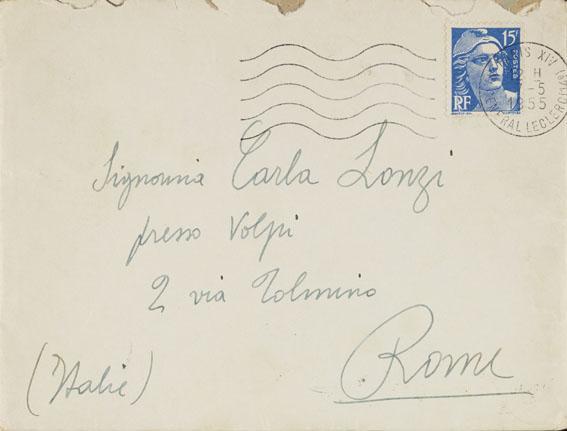 15F
POSTES
RF
PARIS XIV
12 H
-5
1955
GENERAL LECLERC
Signorina Carla Lonzi
presso Volpi
2 via Tolmino
Rome
(Italie)